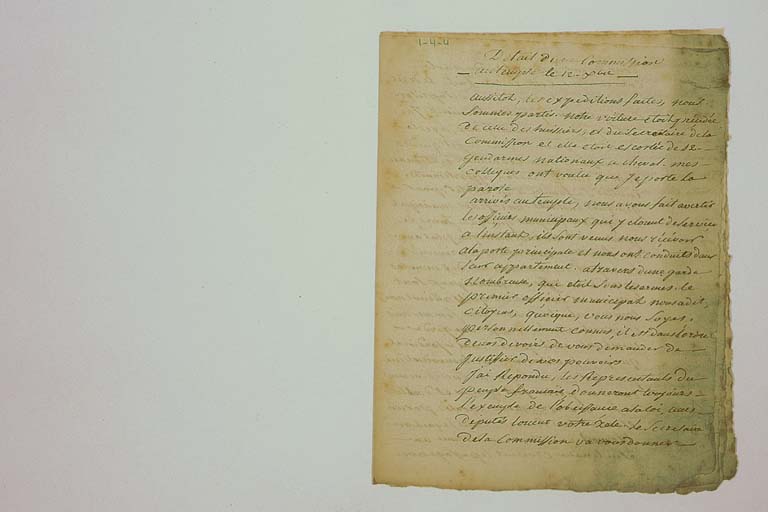 1-4-4
Detail d'une Commission
au temple le 12 Xbre
aussitot, les expeditions faites, nous
sommes partis. notre voiture etoit précédée
de celle des huissiers, et du secretaire de la
Commission et elle etoit escortée de 12
gendarmes nationaux a cheval. mes
collegues ont voulu que je porte la
parole
arrivés au temple, nous avons fait avertir
les officiers municipaux qui y etoient de service
a l'instant, ils sont venus nous recevoir
a la porte principale et nous ont conduits dans
leur appartement. atravers d'une garde
nombreuse, qui etoit sous les armes. le
premier officier municipal nous a dit,
citoyens, quoique, vous nous soyés,
personnellement connus, il est dans l'ordre
de nos devoirs de vous demander de
justifier de vos pouvoirs
J'ai Repondu, les Representants du
peuple francais, donneront toujours
L'exemple de l'obeissance a la loi, mes
deputés louent votre Zele. le secretaire
de la Commission va vous donner